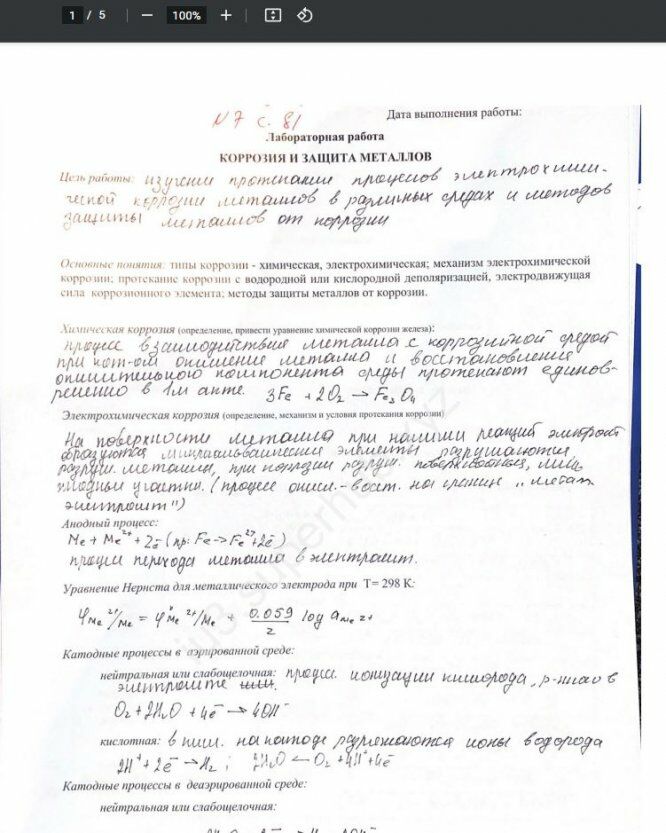 1 / 5 — 100% +
N7 с. 81
Дата выполнения работы:
Лабораторная работа
КОРРОЗИЯ И ЗАЩИТА МЕТАЛЛОВ
Цель работы: изучении протекания процессов электрохими-
ческой коррозии металлов в различных средах и методов
защиты металлов от коррозии
Основные понятия: типы коррозии - химическая, электрохимическая; механизм электрохимической
коррозии; протекание коррозии с водородной или кислородной деполяризацией, электродвижущая
сила коррозионного элемента; методы защиты металлов от коррозии.
Химическая коррозия (определение, привести уравнение химической коррозии железа):
процесс взаимодействие металла с коррозитной средой
при кот-ом окисление металла и восстановление
окислительного компонента среды протекают единов-
ременно в 1м акте. 3Fe + 2O₂ → Fe₃O₄
Электрохимическая коррозия (определение, механизм и условия протекания коррозии)
На поверхности металла при наличии реакций электролит
образуются микрогальванические элементы разрушаются
разруш. металла, при коррозии разруш. поверхностный, лишь
участки. (процесс окисл.-восст. на границе „металл
электролит")
Анодный процесс:
Me + Me²⁺ + 2ē (пр: Fe → Fe²⁺ + 2ē)
процесс перехода металла в электролит.
Уравнение Нернста для металлического электрода при T= 298 К:
φMe²⁺/Me = φ°Me²⁺/Me + 0.059/2 log aMe²⁺
Катодные процессы в аэрированной среде:
нейтральная или слабощелочная: процесс ионизации кислорода, р-ного в
электролите
O₂ + 2H₂O + 4ē → 4OH⁻
кислотная: в на катоде разряжаются ионы водорода
2H⁺ + 2ē → H₂ ; 2H₂O ← O₂ + 4H⁺ + 4ē
Катодные процессы в деаэрированной среде:
нейтральная или слабощелочная: